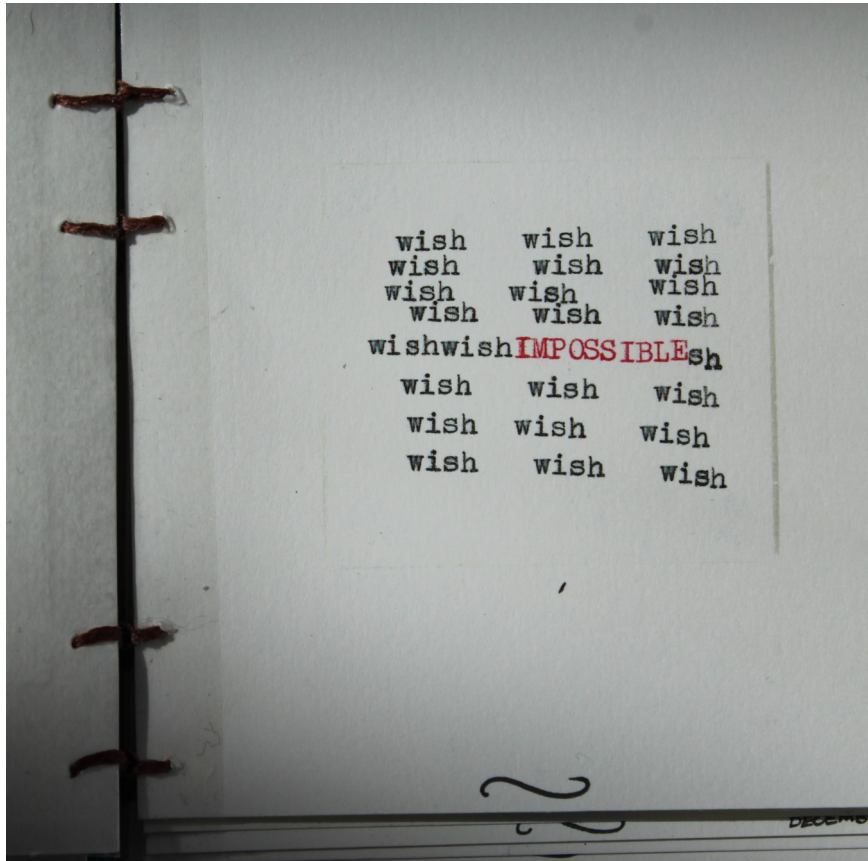 wish wish wish
wish wish wish
wish wish wish
wish wish wish
wishwishIMPOSSIBLEsh
wish wish wish
wish wish wish
wish wish wish